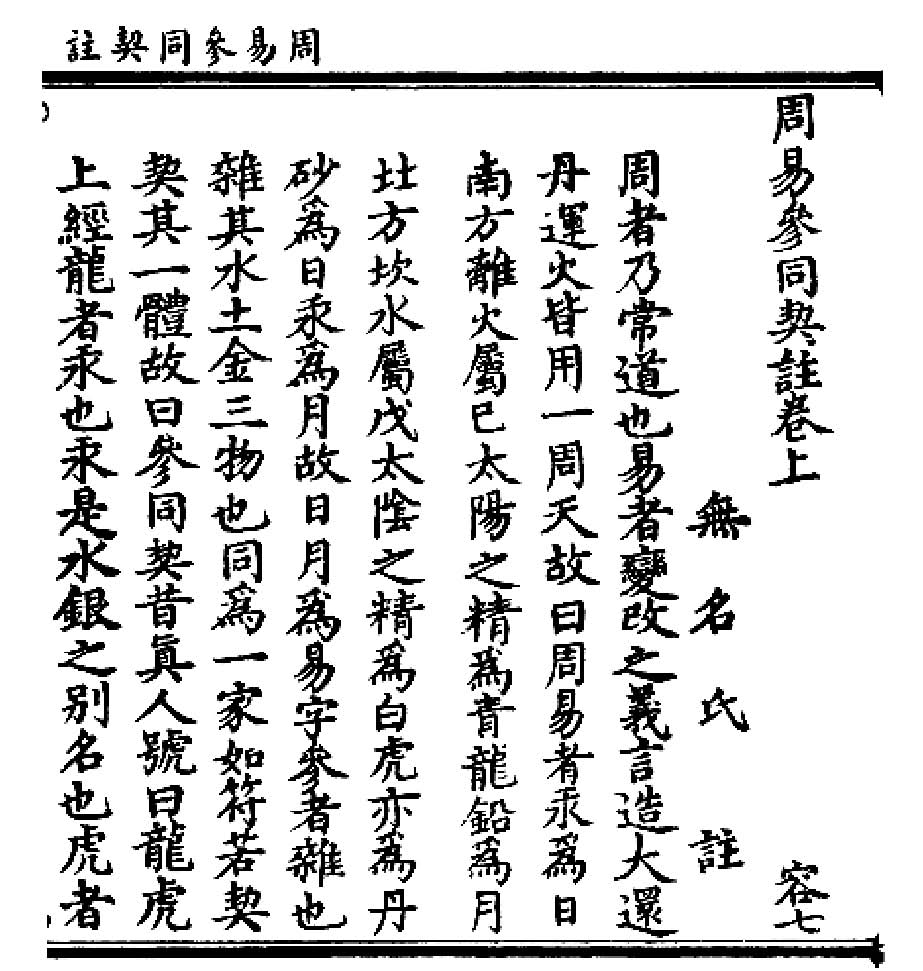 周易參同契註
周易參同契註卷上 容七
無名氏註
周者乃常道也易者變改之義言造大還
丹運火皆用一周天故曰周易者汞為日
南方離火屬己太陽之精爲青龍鉛爲月
北方坎水屬戊太陰之精爲白虎亦爲丹
砂爲日汞爲月故日月爲易字參者雜也
雜其水土金三物也同爲一家如符若契
契其一體故曰參同契昔眞人號曰龍虎
上經龍者汞也汞是水銀之别名也虎者